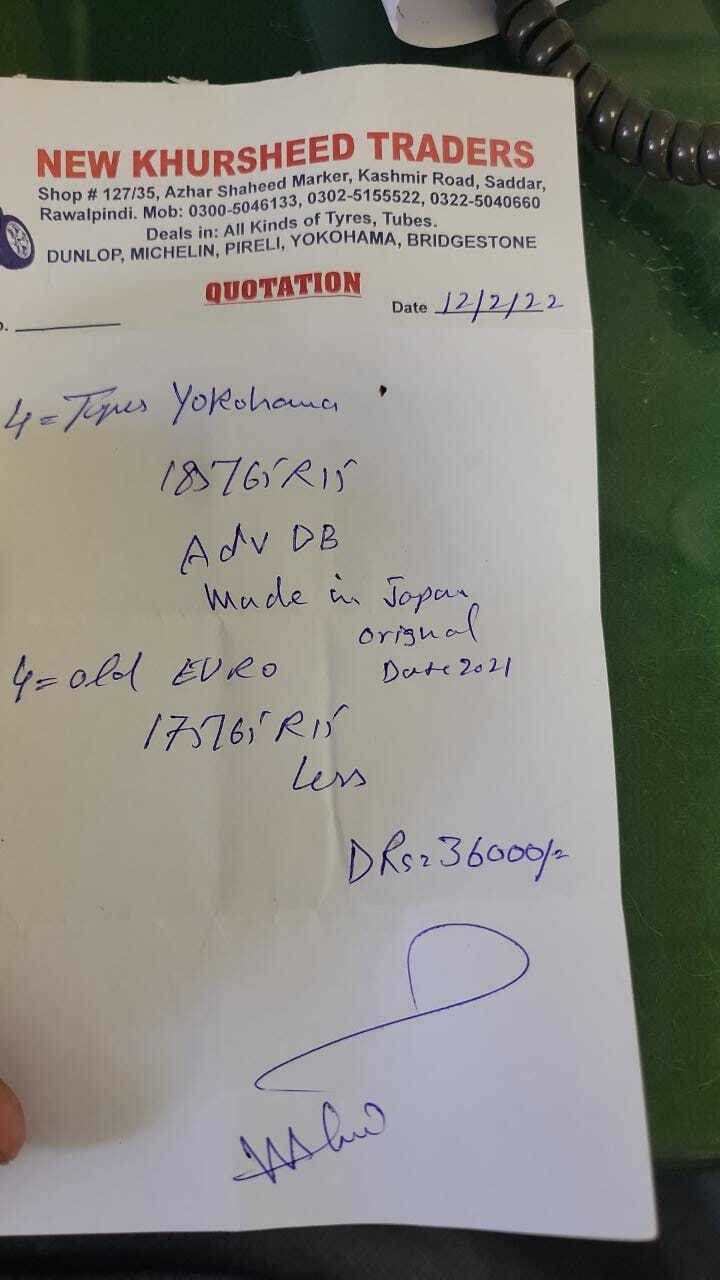 NEW KHURSHEED TRADERS
Shop # 127/35, Azhar Shaheed Marker, Kashmir Road, Saddar,
Rawalpindi. Mob: 0300-5046133, 0302-5155522, 0322-5040660
Deals in: All Kinds of Tyres, Tubes.
DUNLOP, MICHELIN, PIRELI, YOKOHAMA, BRIDGESTONE
QUOTATION
Date 12/2/22
4 = Tyres Yokohama
185/65R15
Adv DB
Made in Japan
Orignal
4 = old EURO Date 2021
175/65R15
Less
DRs = 36000/=